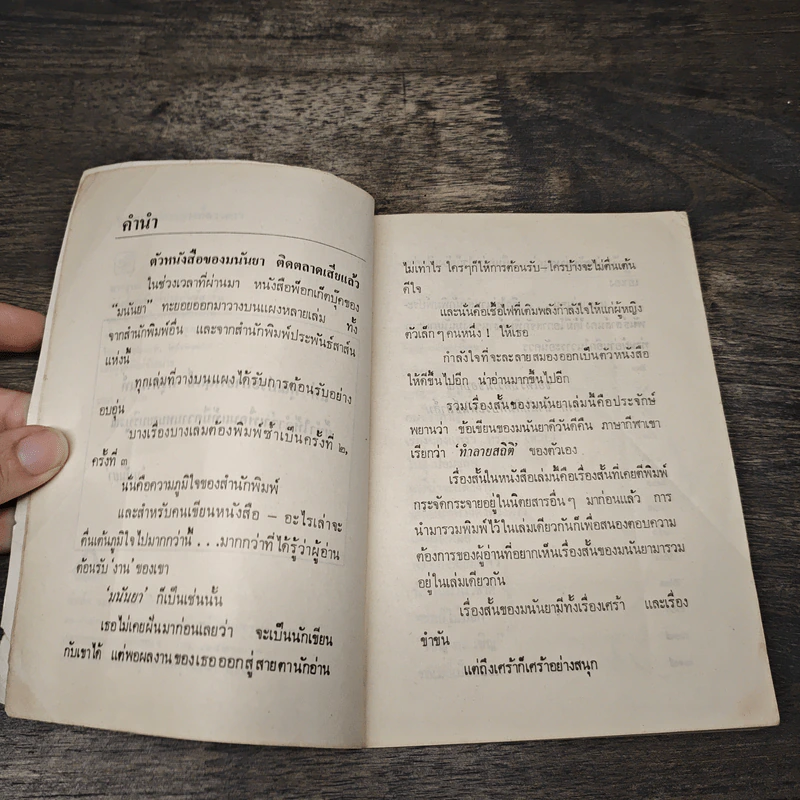 คำนำ
ตัวหนังสือของมนันยา ติดตลาดเสียแล้ว
ในช่วงเวลาที่ผ่านมา หนังสือพ็อกเก็ตบุ๊คของ
"มนันยา" ทะยอยออกมาวางบนแผงหลายเล่ม ทั้ง
จากสำนักพิมพ์อื่น และจากสำนักพิมพ์ประพันธ์สาส์น
แห่งนี้
ทุกเล่มที่วางบนแผงได้รับการต้อนรับอย่าง
อบอุ่น
บางเรื่องบางเล่มต้องพิมพ์ซ้ำเป็นครั้งที่ ๒,
ครั้งที่ ๓
นั่นคือความภูมิใจของสำนักพิมพ์
และสำหรับคนเขียนหนังสือ – อะไรเล่าจะ
ตื่นเต้นภูมิใจไปมากกว่านี้ ...มากกว่าที่ได้รู้ว่าผู้อ่าน
ต้อนรับ 'งาน' ของเขา
'มนันยา' ก็เป็นเช่นนั้น
เธอไม่เคยฝันมาก่อนเลยว่า จะเป็นนักเขียน
กับเขาได้ แต่พอผลงานของเธอออกสู่สายตานักอ่าน
ไม่เท่าไร ใครๆก็ให้การต้อนรับ–ใครบ้างจะไม่ตื่นเต้น
ดีใจ
และนั่นคือเชื้อไฟที่เติมพลังกำลังใจให้แก่ผู้หญิง
ตัวเล็กๆคนหนึ่ง! ให้เธอ
กำลังใจที่จะละลายสมองออกเป็นตัวหนังสือ
ให้ดีขึ้นไปอีก น่าอ่านมากขึ้นไปอีก
รวมเรื่องสั้นของมนันยาเล่มนี้คือประจักษ์
พยานว่า ข้อเขียนของมนันยาดีวันดีคืน ภาษากีฬาเขา
เรียกว่า 'ทำลายสถิติ' ของตัวเอง
เรื่องสั้นในหนังสือเล่มนี้คือเรื่องสั้นที่เคยตีพิมพ์
กระจัดกระจายอยู่ในนิตยสารอื่นๆ มาก่อนแล้ว การ
นำมารวมพิมพ์ไว้ในเล่มเดียวกันก็เพื่อสนองตอบความ
ต้องการของผู้อ่านที่อยากเห็นเรื่องสั้นของมนันยามารวม
อยู่ในเล่มเดียวกัน
เรื่องสั้นของมนันยามีทั้งเรื่องเศร้า และเรื่อง
ขำขัน
แต่ถึงเศร้าก็เศร้าอย่างสนุก